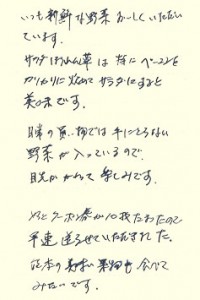 いつも新鮮な野菜おいしくいただい
ています。
サラダほうれん草は 特に ベーコンを
カリカリに炒めて サラダにすると
美味です。
日頃の買い物では手にとらない
野菜が入っているので
目先がかわって 楽しみです。
やっとクーポン券が10枚たまったので
早速送らせていただきました。
果物も 食べて
みたいです。